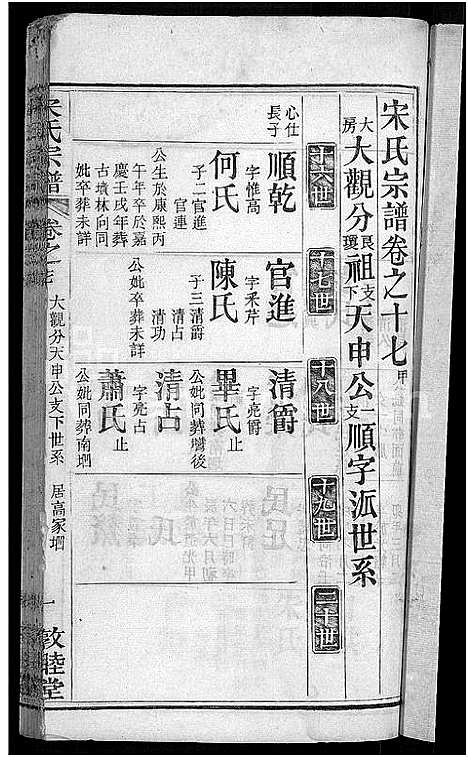 宋氏宗譜卷之十七甲
大房大觀分良瓊祖支下天申公一支順字派世系
十六世
十七世
十八世
十九世
二十世
心仕長子
順乾
字惟高
何氏
子二官進
官連
公生於康熙丙
午年卒於嘉
慶壬戌年葬
古墳林向同
妣卒葬未詳
官進
字釆芹
陳氏
子三清爵
清占
清功
公妣卒葬未詳
清爵
字亮爵
畢氏止
公妣同葬墻後
清占
字亮占
蕭氏止
公妣同葬南堋
宋氏宗譜
卷之十七
大觀分天申公支下世系
居高家堋
一
敦睦堂